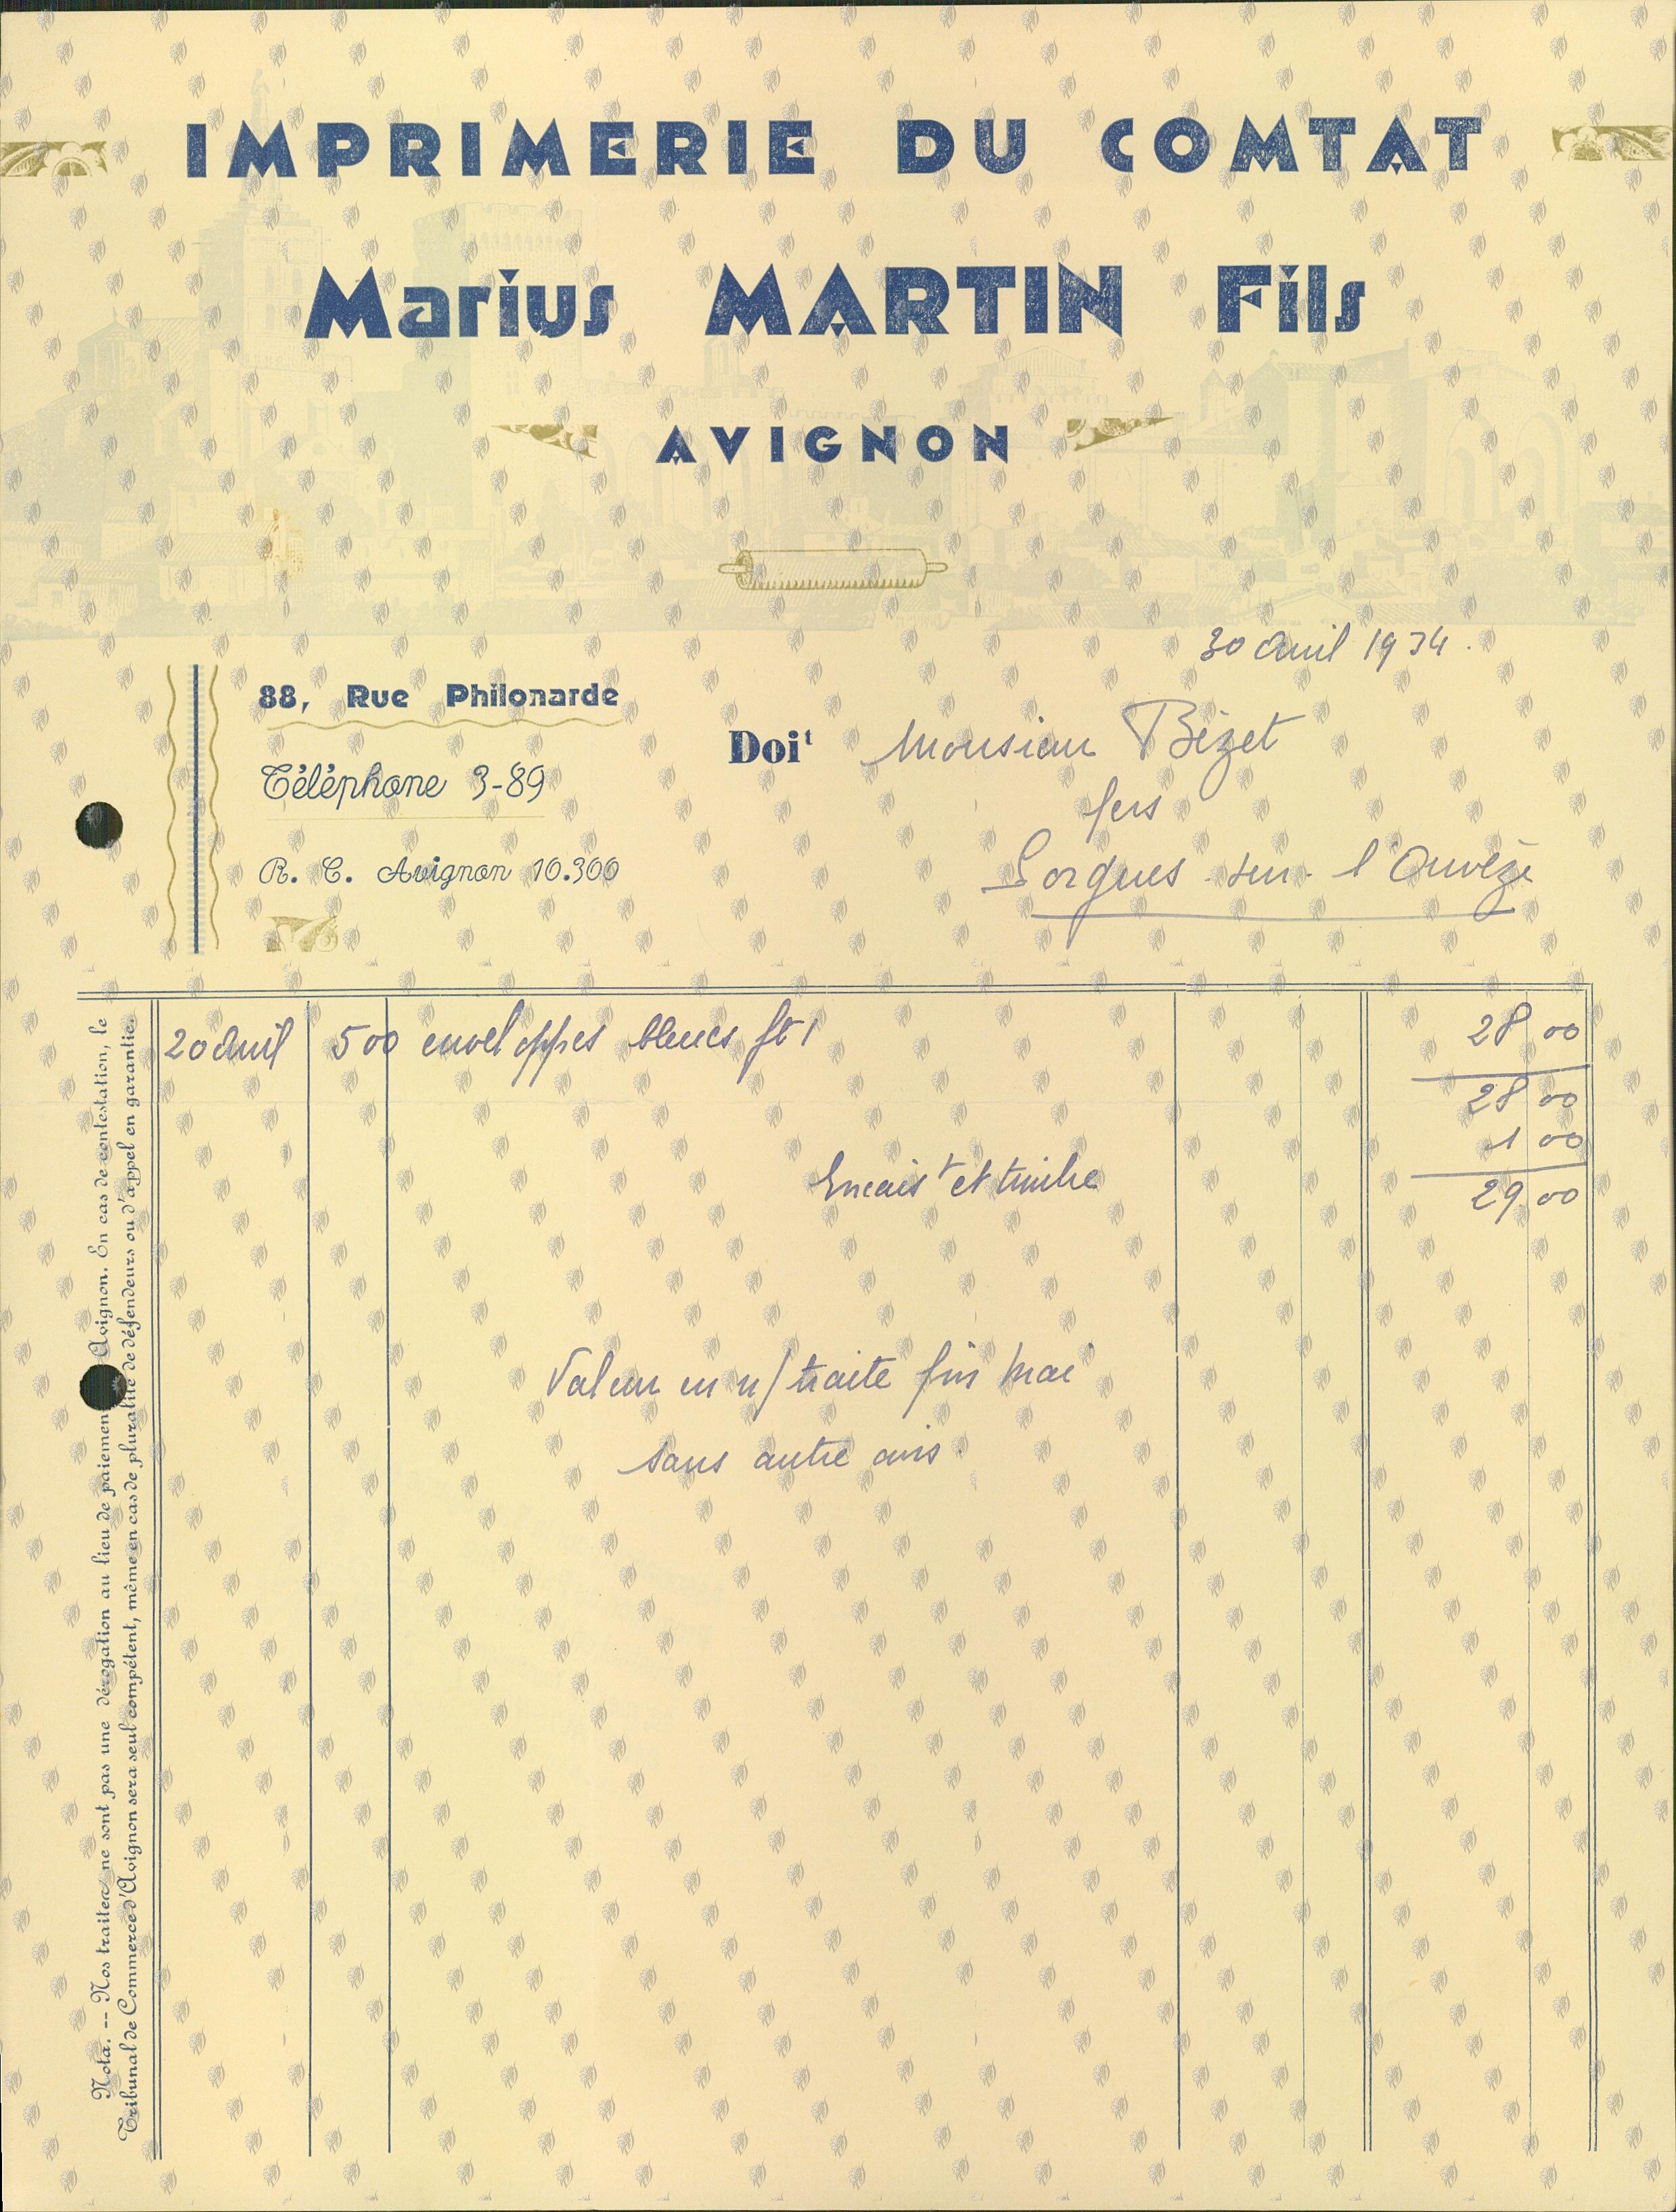 IMPRIMERIE DU COMTAT
Marius MARTIN Fils
AVIGNON
30 avril 1934.
88, Rue Philonarde
Téléphone 3-89
R. C. Avignon 10.300
Doit Monsieur Bézet
fers
Sorgues sur l'Ouvèze
20 avril 500 enveloppes bleues ft 1 28 00
28 00
1 00
Encaist et timbre
29 00
Valeur en n/ traite fin mai
sans autre avis.
Nota. -- Nos traites ne sont pas une dérogation au lieu de paiement Avignon. En cas de contestation, le
Tribunal de Commerce d'Avignon sera seul compétent, même en cas de pluralité de défendeurs ou d'appel en garantie.